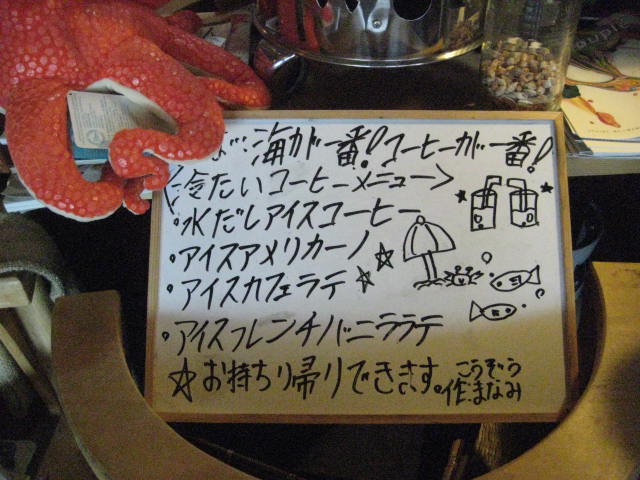 海が一番!コーヒーが一番!
<冷たいコーヒーメニュー>
・水だしアイスコーヒー
・アイスアメリカーノ
・アイスカフェラテ
・アイスフレンチバニララテ
☆お持ち帰りできます。
こうぞう
作:まなみ